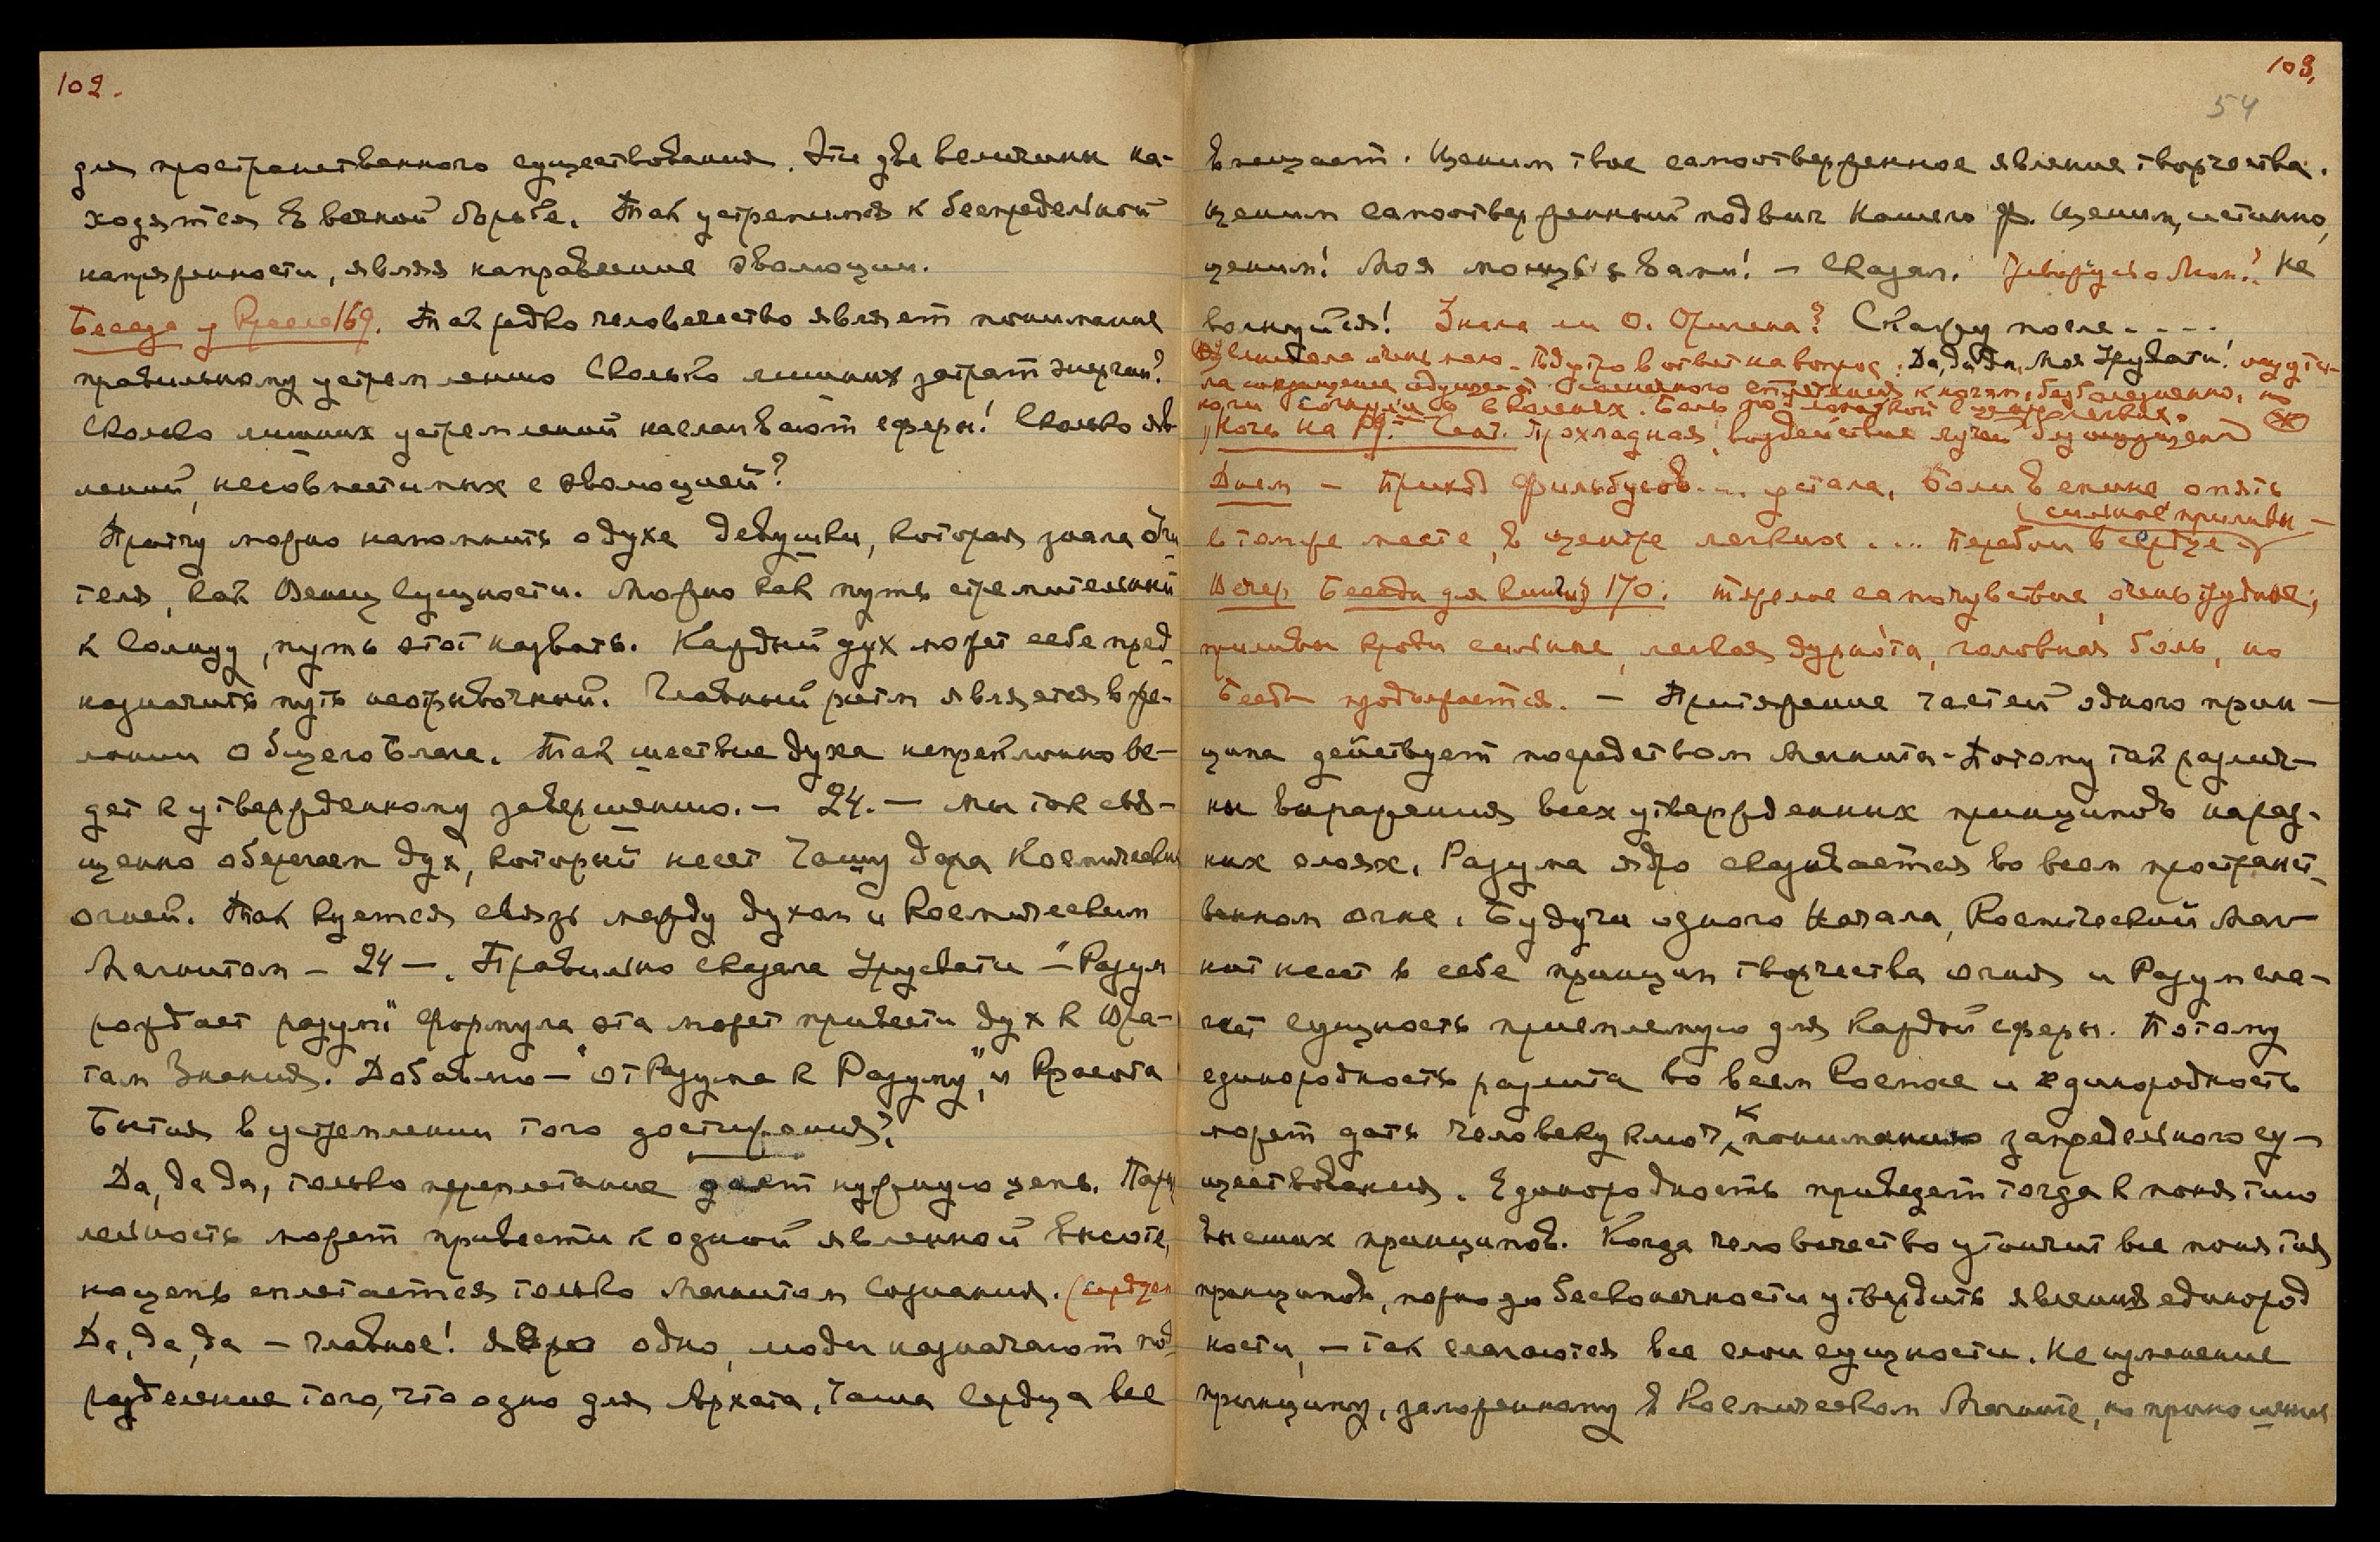 102.
для пространственного существования. Эти две величины на-
ходятся в вечной борьбе. Так устремимся к беспредельной
напряженности, являя направление эволюции.
Беседа у Кресла 169. Так редко человечество являет понимание
правильному устремлению Сколько лишних затрат энергии?
Сколько лишних устремлений наслаивают сферы! Сколько яв-
лений, несовместимых с эволюцией?
Притчу можно напомнить о духе девушки, которая знала Учи
теля, как Венец Сущности. Можно как путь стремительный
к Солнцу, путь этот назвать. Каждый дух может себе пред-
назначить путь неотрывочный. Главный ритм является в же-
лании Общего Блага. Так шествие духа непреклонно ве-
дет к утвержденному завершению. — 24. — Мы так свя-
щенно оберегаем дух, который несет Чашу дара Космических
огней. Так куется связь между духом и Космическим
Магнитом — 24 —. Правильно сказала Урусвати — "Разум
рождает разум". Формула эта может привести дух к Вра-
там Знания. Добавлю — "от Разума к Разуму", и Красота
Бытия в устремлении того достижения".
Да, да да, только переплетание дает нужную цепь. Парал
лельность может привести к одной явленной высоте,
но цепь сплетается только Магнитом Сознания. (сердцем
Да, да, да — главное! Ядро одно, люди назначают под
разделение того, что одно для Архата, Чаша Сердца все
103.
54
вмещает. Ценим твое самоотверженное явление творчества.
Ценим самоотверженный подвиг Нашего ф. Ценим, истинно,
ценим! Моя мощь с вами! — Сказал. Не
волнуйся! Знала ли О. Скажу после. . . .
очень мало. утро в ответ на вопрос: Да, да, да, Моя Урусвати! ощути-
ла солнечного к ногам, безболезненно, но
ноги в коленях. Боль под лопаткой в центре легких.
"Ночь на 29." Сент. Прохладная, воздействие лучей
Днем — Приход Фильбусов... устала, Боли в спине опять
(сильные приливы —
в том же месте, в центре легких . ... Перебои в сердце —)
Вечер Беседы для книги 170. Тяжелое самочувствие, очень трудное,
приливы крови сильные, легкая дурнота, головная боль, но
продолжается. — Притяжение частей одного прин —
ципа действует посредством Магнита. Потому так различ-
ны выражения всех утвержденных принципов на раз-
ных слоях. Разума ядро сказывается во всем пространст-
венном огне. Будучи одного Начала, Космический Маг
нит несет в себе принцип творчества огня и Разум сла-
гает сущность приемлемую для каждой сферы. Потому
единородность разлита во всем Космосе и единородность
может дать человеку ключ к пониманию запредельного су-
ществования. Единородность приведет тогда к понятию
высших принципов. Когда человечество утончит все понятия
принципов, можно до бесконечности утвердить явления единород
ности, — так слагаются все слои сущности. Не изменение
принципу, заложенному в Космическом Магните, но приношения